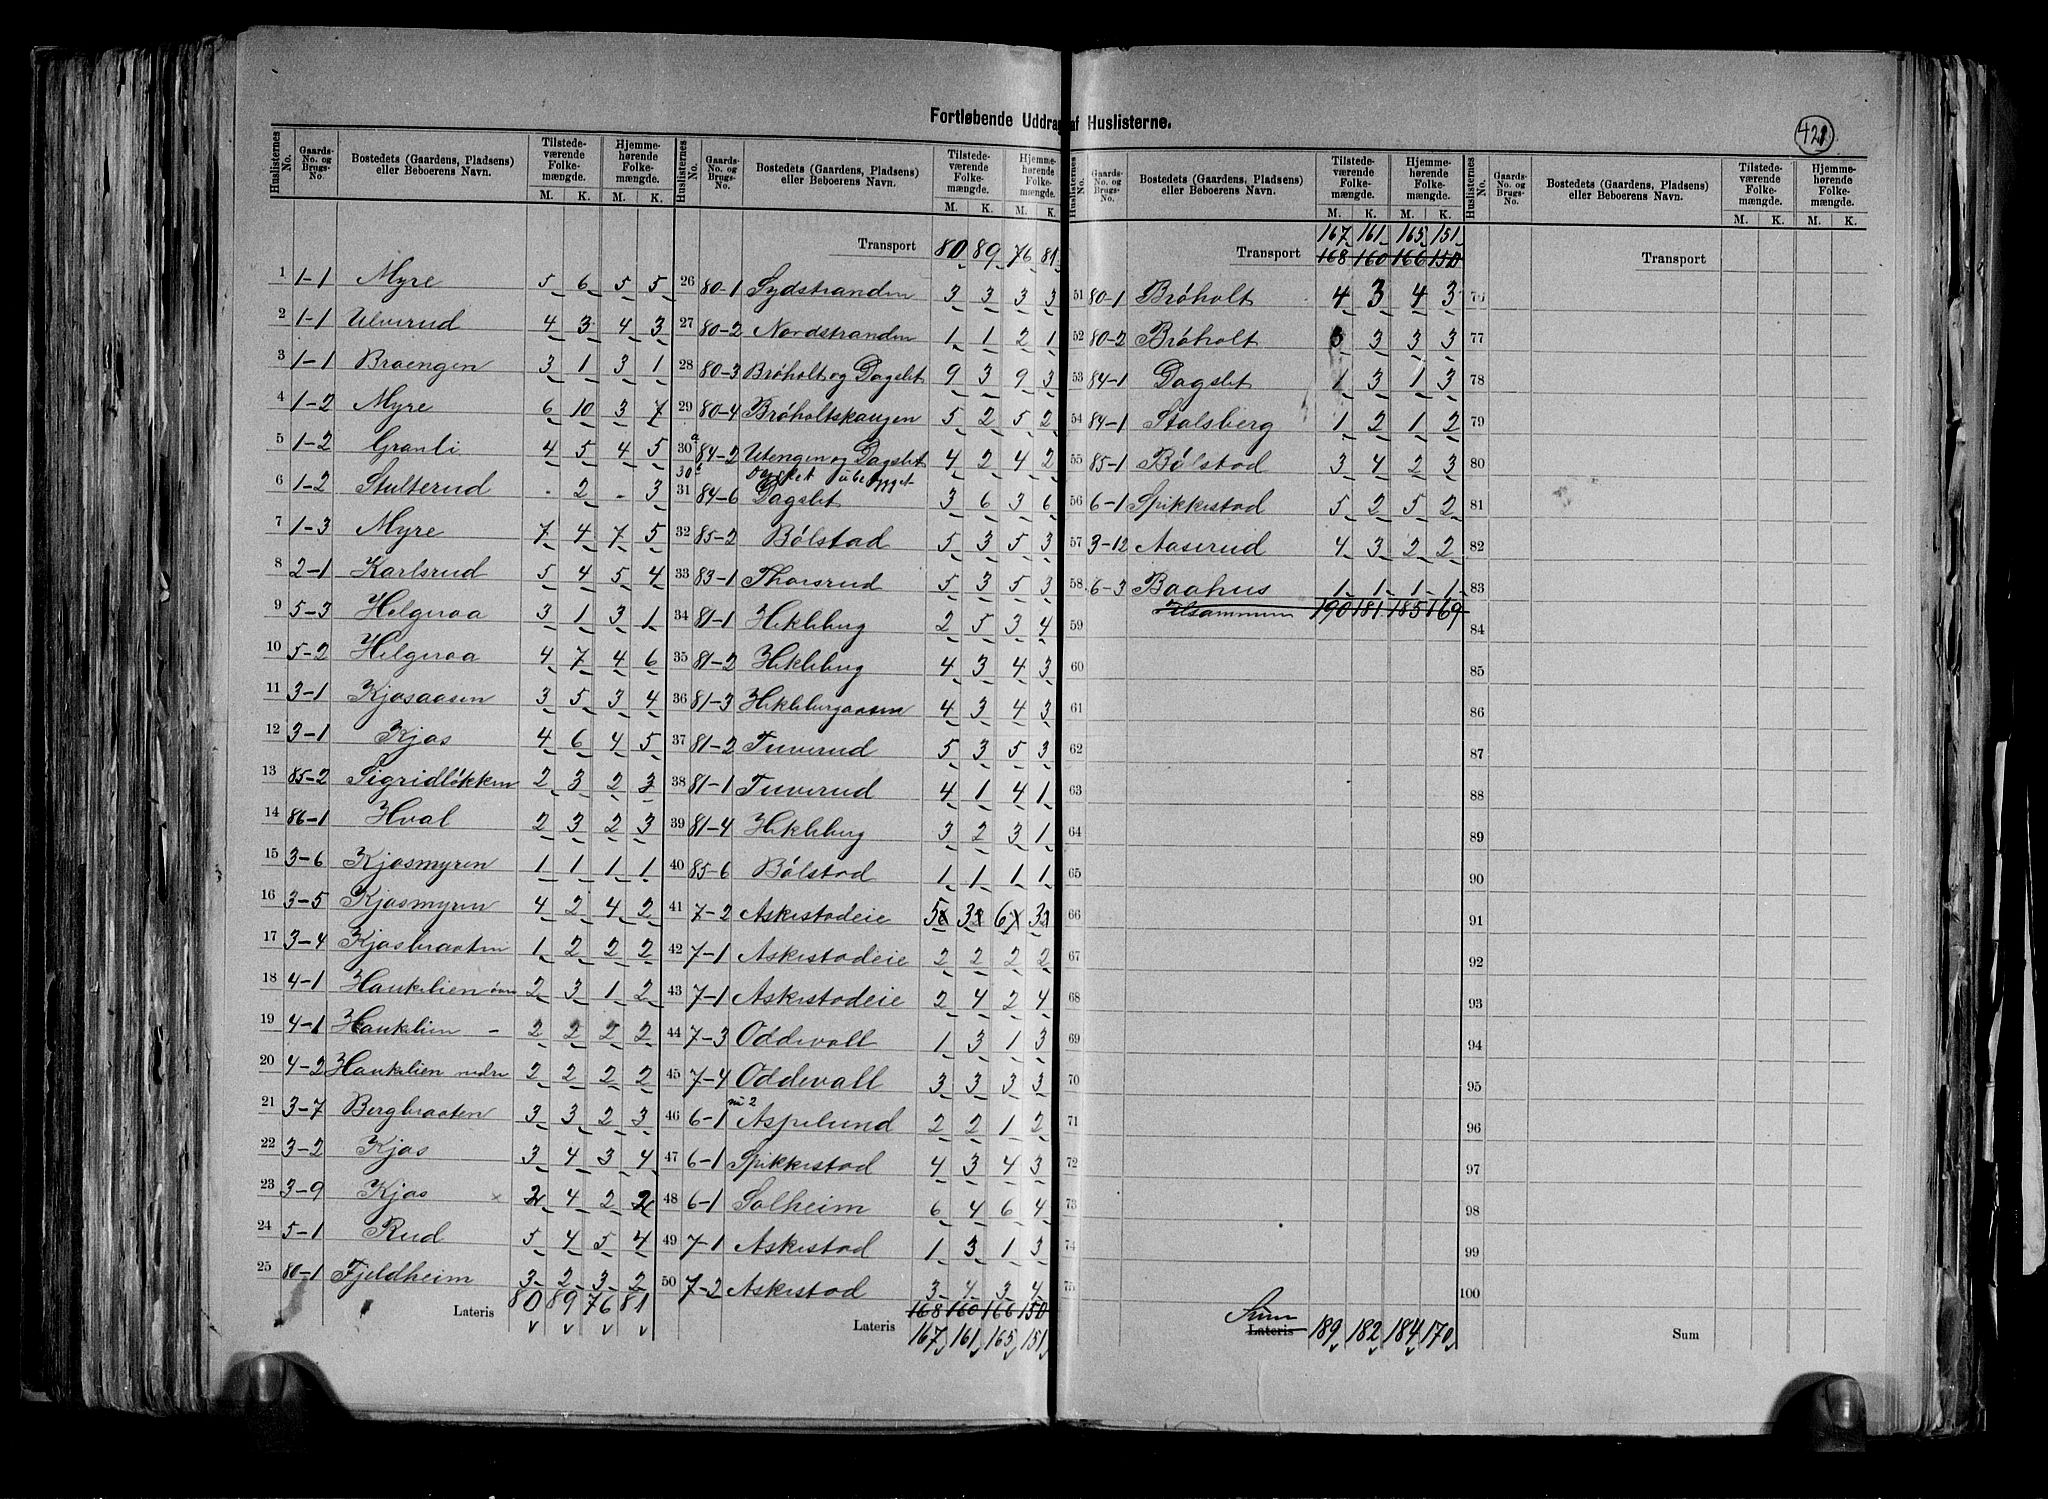 Fortløbende Uddrag af Huslisterne.
421
Huslisternes No. Gaards-No. og Brugs-No. Bostedets (Gaardens, Pladsen) eller Beboerens Navn. Tilstedeværende Folkemængde. M. K. Hjemmehørende Folkemængde. M. K.
1 1-1 Myre 5 6 5 5
2 1-1 Ulverud 4 3 4 3
3 1-1 Braengen 3 1 3 1
4 1-2 Myre 6 10 3 7
5 1-2 Granli 4 5 4 5
6 1-2 Stulterud - 2 - 3
7 1-3 Myre 7 4 7 5
8 2-1 Karlsrud 5 4 5 4
9 5-3 Helgeraa 3 1 3 1
10 5-2 Helgeraa 4 7 4 6
11 3-1 Kjosaasen 3 5 3 4
12 3-1 Kjos 4 6 4 5
13 85-2 Sigridløkken 2 3 2 3
14 86-1 Hval 2 3 2 3
15 3-6 Kjosmyren 1 1 1 1
16 3-5 Kjosmyren 4 2 4 2
17 3-4 Kjosbraaten 1 2 2 2
18 4-1 Haukelien øvre 2 3 1 2
19 4-1 Haukelien - 2 2 2 2
20 4-2 Haukelien nedre 2 2 2 2
21 3-7 Bergbraaten 3 3 2 3
22 3-2 Kjos 3 4 3 4
23 3-9 Kjos x 2 4 2 2
24 5-1 Rud 5 4 5 4
25 80-1 Fjeldheim 3 2 3 2
Lateris 80 89 76 81
Huslisternes No. Gaards-No. og Brugs-No. Bostedets (Gaardens, Pladsen) eller Beboerens Navn. Tilstedeværende Folkemængde. M. K. Hjemmehørende Folkemængde. M. K.
Transport 80 89 76 81
26 80-1 Sydstranden 3 3 3 3
27 80-2 Nordstranden 1 1 2 1
28 80-3 Brøholt og Dagslet 9 3 9 3
29 80-4 Brøholtskaugen 5 2 5 2
30a 84-2 Utengen og Dagslet 4 2 4 2
30b Dyrket ubebygget
31 84-6 Dagslet 3 6 3 6
32 85-2 Bølstad 5 3 5 3
33 83-1 Thorsrud 5 3 5 3
34 81-1 Hekleberg 2 5 3 4
35 81-2 Hekleberg 4 3 4 3
36 81-3 Heklebergaasen 4 3 4 3
37 81-2 Tuverud 5 3 5 3
38 81-1 Tuverud 4 1 4 1
39 81-4 Hekleberg 3 2 3 1
40 85-6 Bølstad 1 1 1 1
41 7-2 Askestadeie 5x 3x 6x 3x
42 7-1 Askestadeie 2 2 2 2
43 7-1 Askestadeie 2 4 2 4
44 7-3 Oddevall 1 3 1 3
45 7-4 Oddevall 3 3 3 3
46 6-1 Aspelund 2 2 1 2
47 6-1 Spikkestad 4 3 4 3
48 6-1 Solheim 6 4 6 4
49 7-1 Askestad 1 3 1 3
50 7-2 Askestad 3 4 3 4
168 160 166 150
Lateris 167 161 165 151
Huslisternes No. Gaards-No. og Brugs-No. Bostedets (Gaardens, Pladsen) eller Beboerens Navn. Tilstedeværende Folkemængde. M. K. Hjemmehørende Folkemængde. M. K.
167 161 165 151
Transport 168 160 166 150
51 80-1 Brøholt 4 3 4 3
52 80-2 Brøholt 3 3 3 3
53 84-1 Dagslet 1 3 1 3
54 84-1 Stalsberg 1 2 1 2
55 85-1 Bølstad 3 4 2 3
56 6-1 Spikkestad 5 2 5 2
57 3-12 Aaserud 4 3 2 2
58 6-3 Baahus 1 1 1 1
Tilsammen 190 181 185 169
59
60
61
62
63
64
65
66
67
68
69
70
71
72
73
74
75
Sum
Lateris 189 182 184 170
Huslisternes No. Gaards-No. og Brugs-No. Bostedets (Gaardens, Pladsen) eller Beboerens Navn. Tilstedeværende Folkemængde. M. K. Hjemmehørende Folkemængde. M. K.
Transport
76
77
78
79
80
81
82
83
84
85
86
87
88
89
90
91
92
93
94
95
96
97
98
99
100
Sum